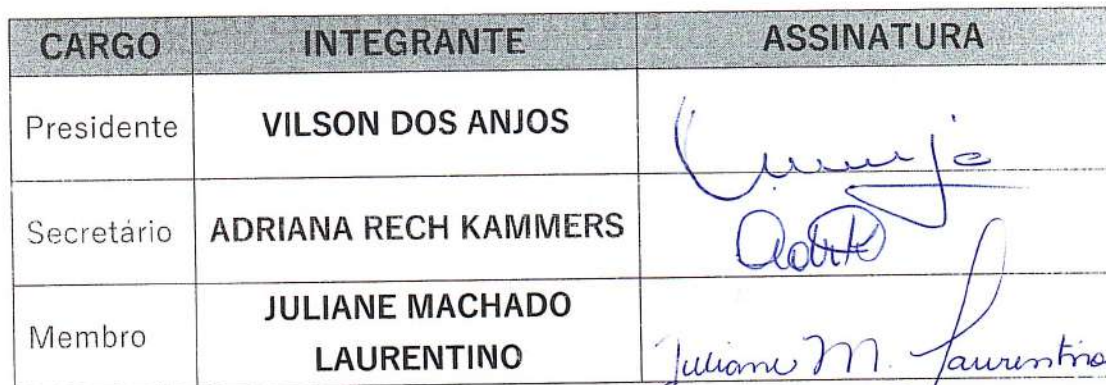 CARGO INTEGRANTE ASSINATURA
Presidente VILSON DOS ANJOS
Secretário ADRIANA RECH KAMMERS
JULIANE MACHADO
Membro Juliane M. Laurentino
LAURENTINO